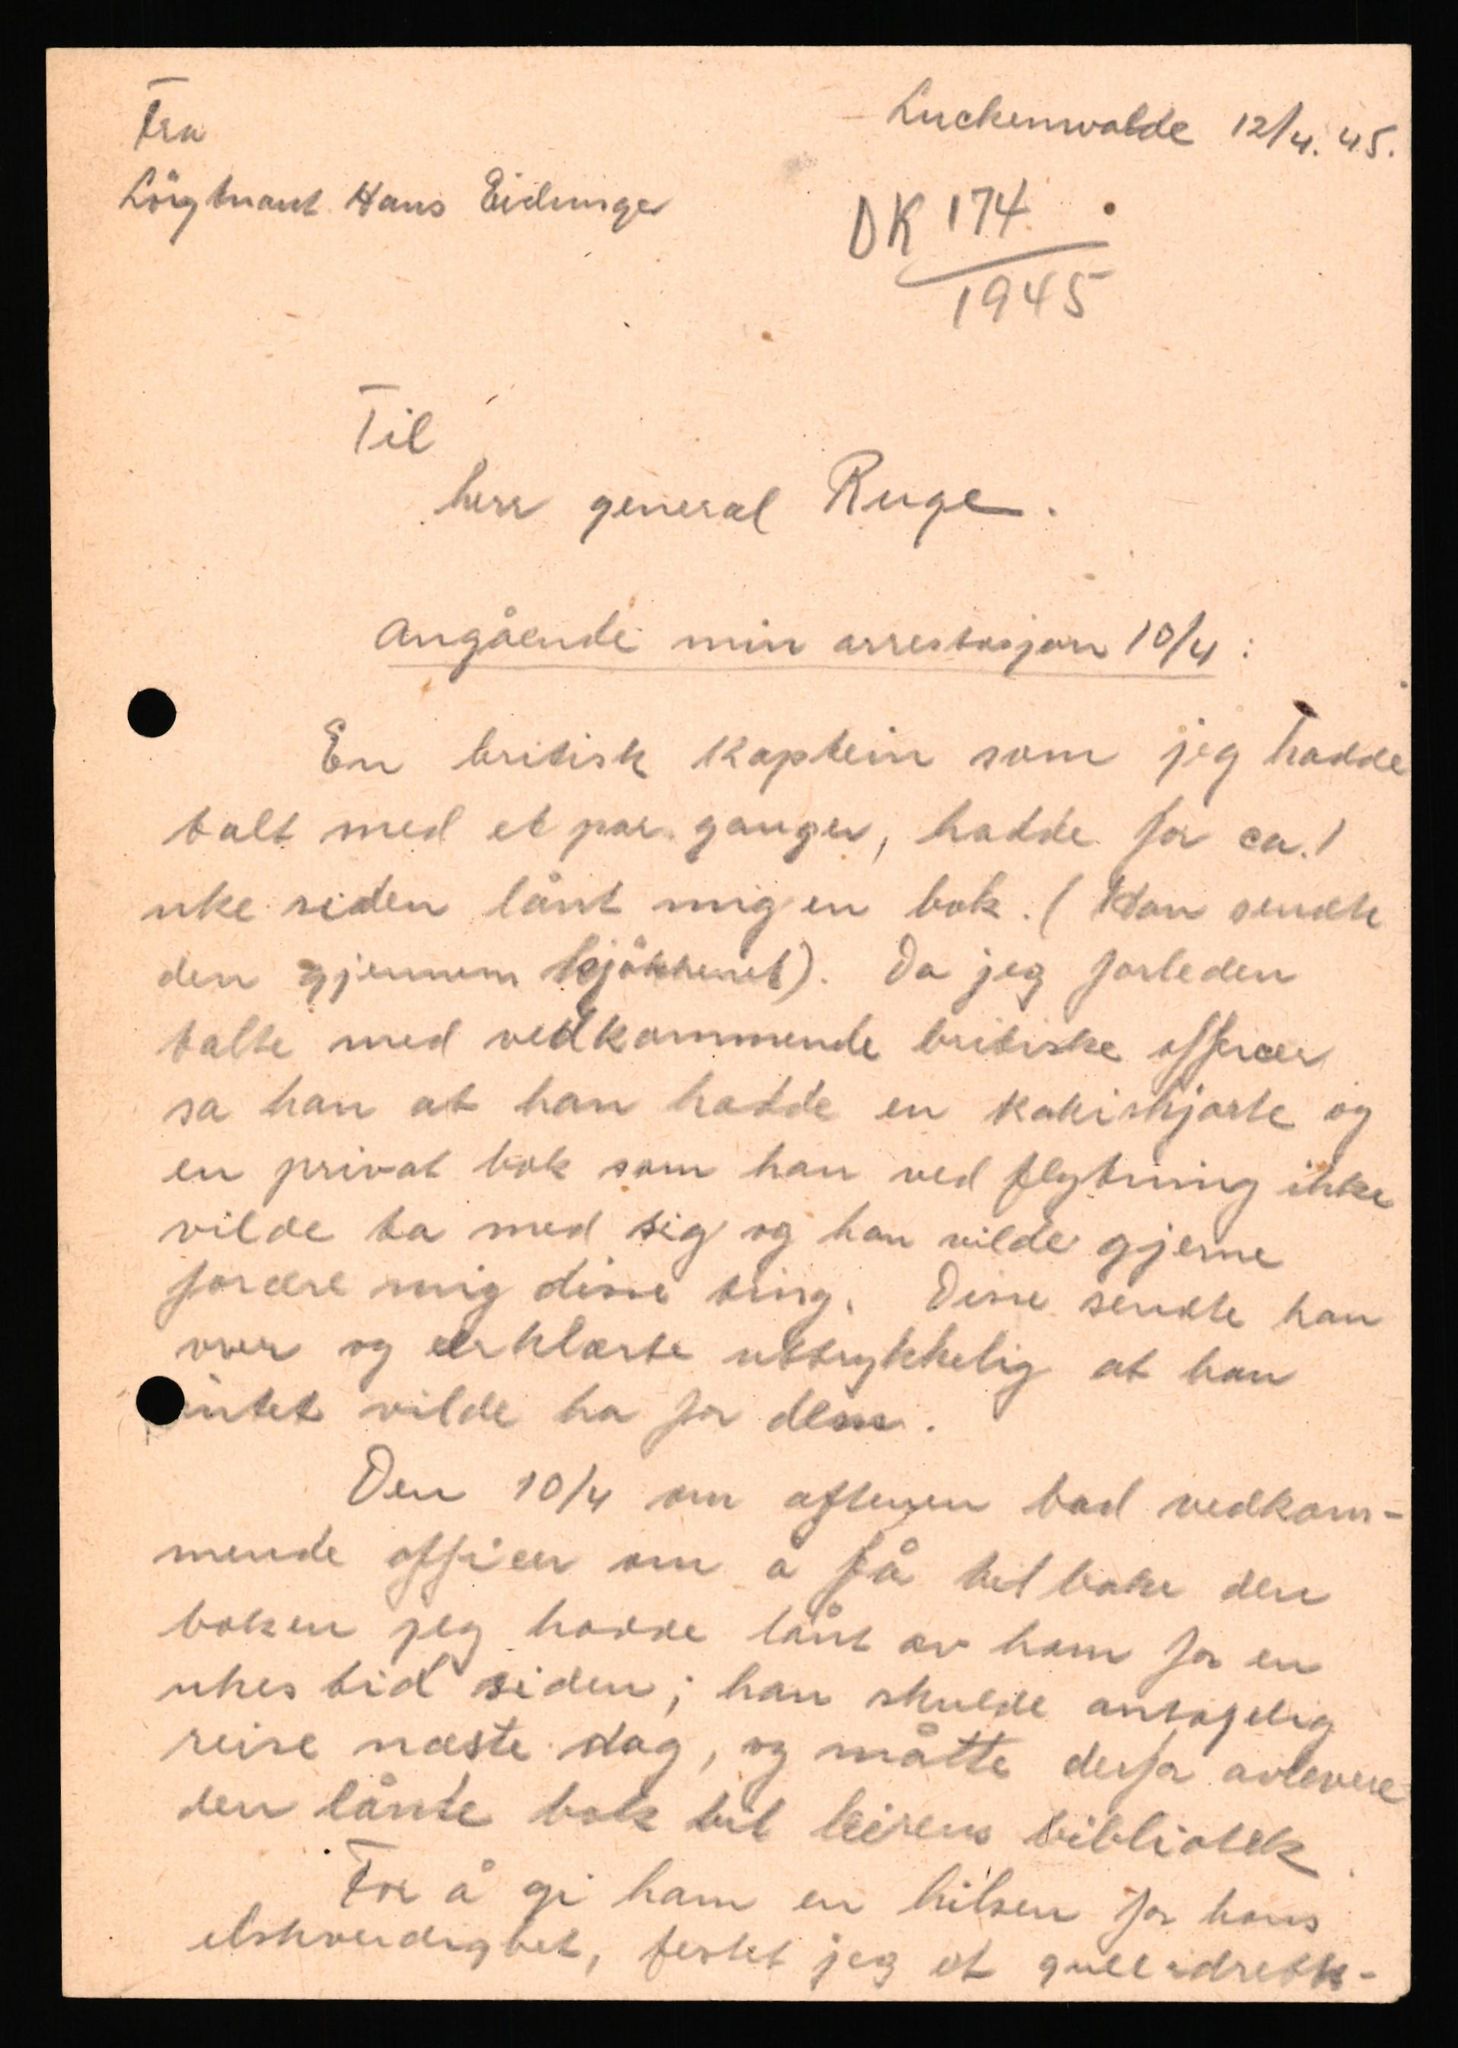 Fra
Luckenwalde 12/4. 45.
Löigtnant Hans Eidunger
DK 174
1945
Til
herr general Ruge.
Angående min arrestasjon 10/4:
En britisk kaptein som jeg hadde
talt med et par ganger, hadde for ca. 1
uke siden lånt mig en bok. (Han sendte
den gjennem kjökkenet). Da jeg forleden
talte med vedkommende britiske officer
sa han at han hadde en kakiskjorte og
en privat bok som han ved flytning ikke
vilde ta med sig og han vilde gjerne
forære mig disse ting. Disse sendte han
over og erklærte uttrykkelig at han
intet vilde ha for dem.
Den 10/4 om aftenen bad vedkom-
mende officer om å få tilbake den
boken jeg hadde lånt av ham for en
ukes tid siden; han skulde antagelig
reise næste dag, og måtte derfor avlevere
den lånte bok til leirens bibliotek.
For å gi ham en hilsen for hans
elskverdighet, festet jeg et gullidretts-